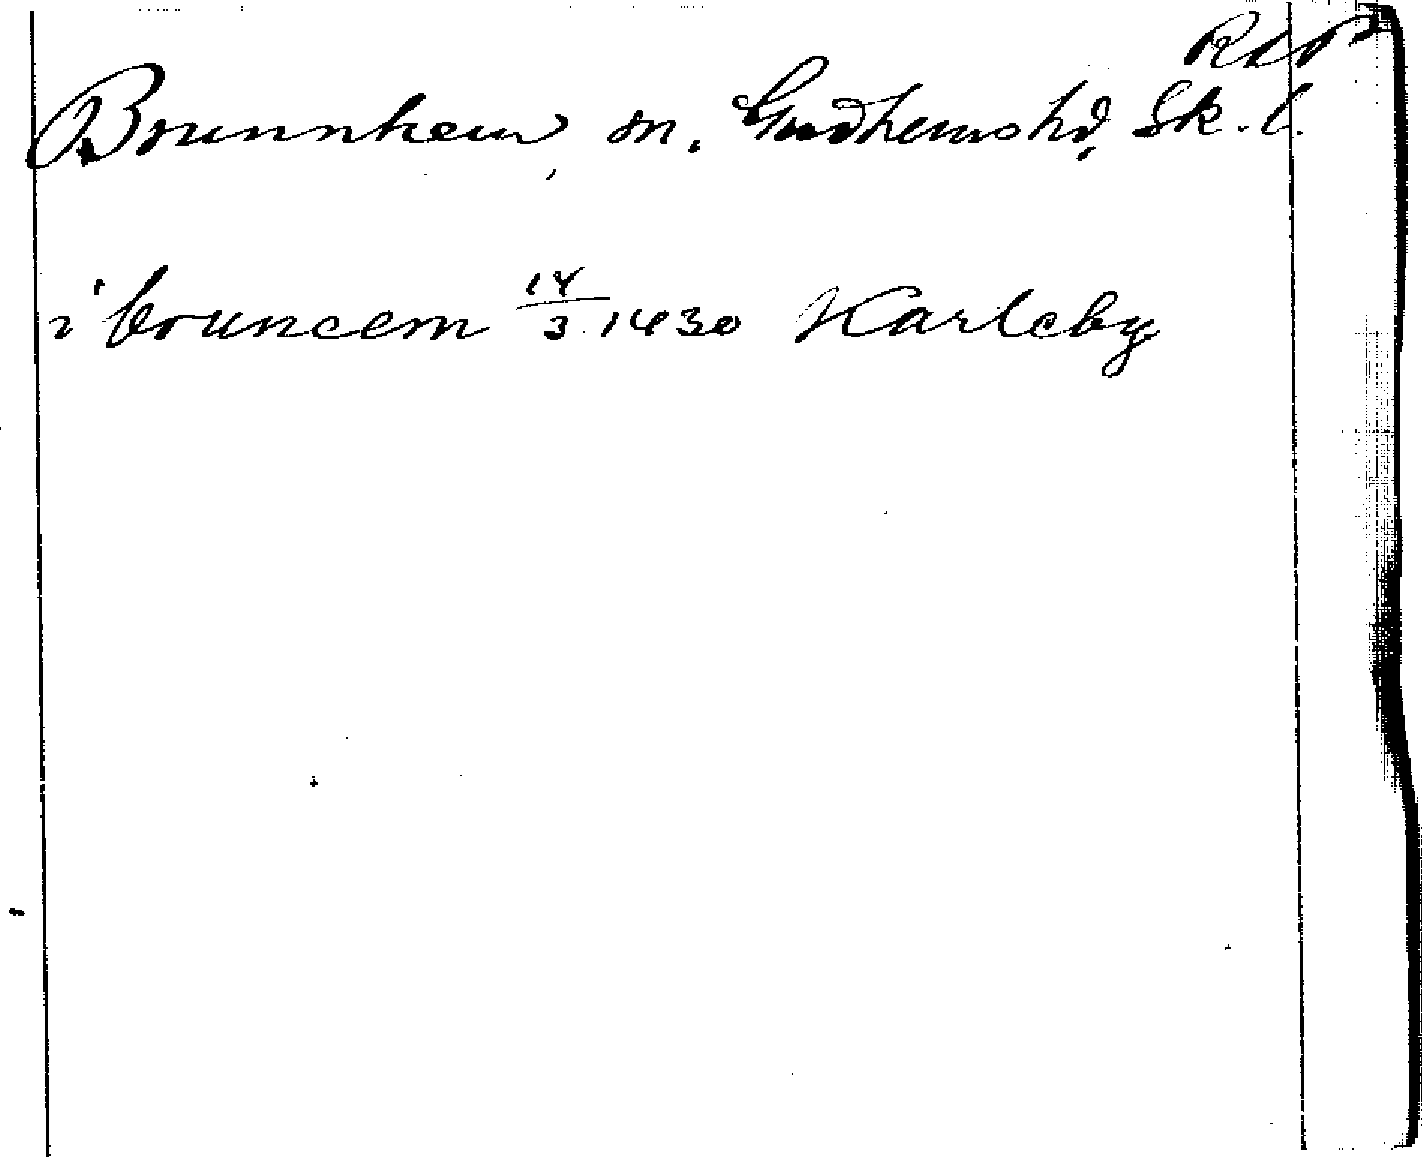 RAP
Brunnhem, sn, Gudhems hd, Sk. l.
i bruncem 14/3 1430 Karleby